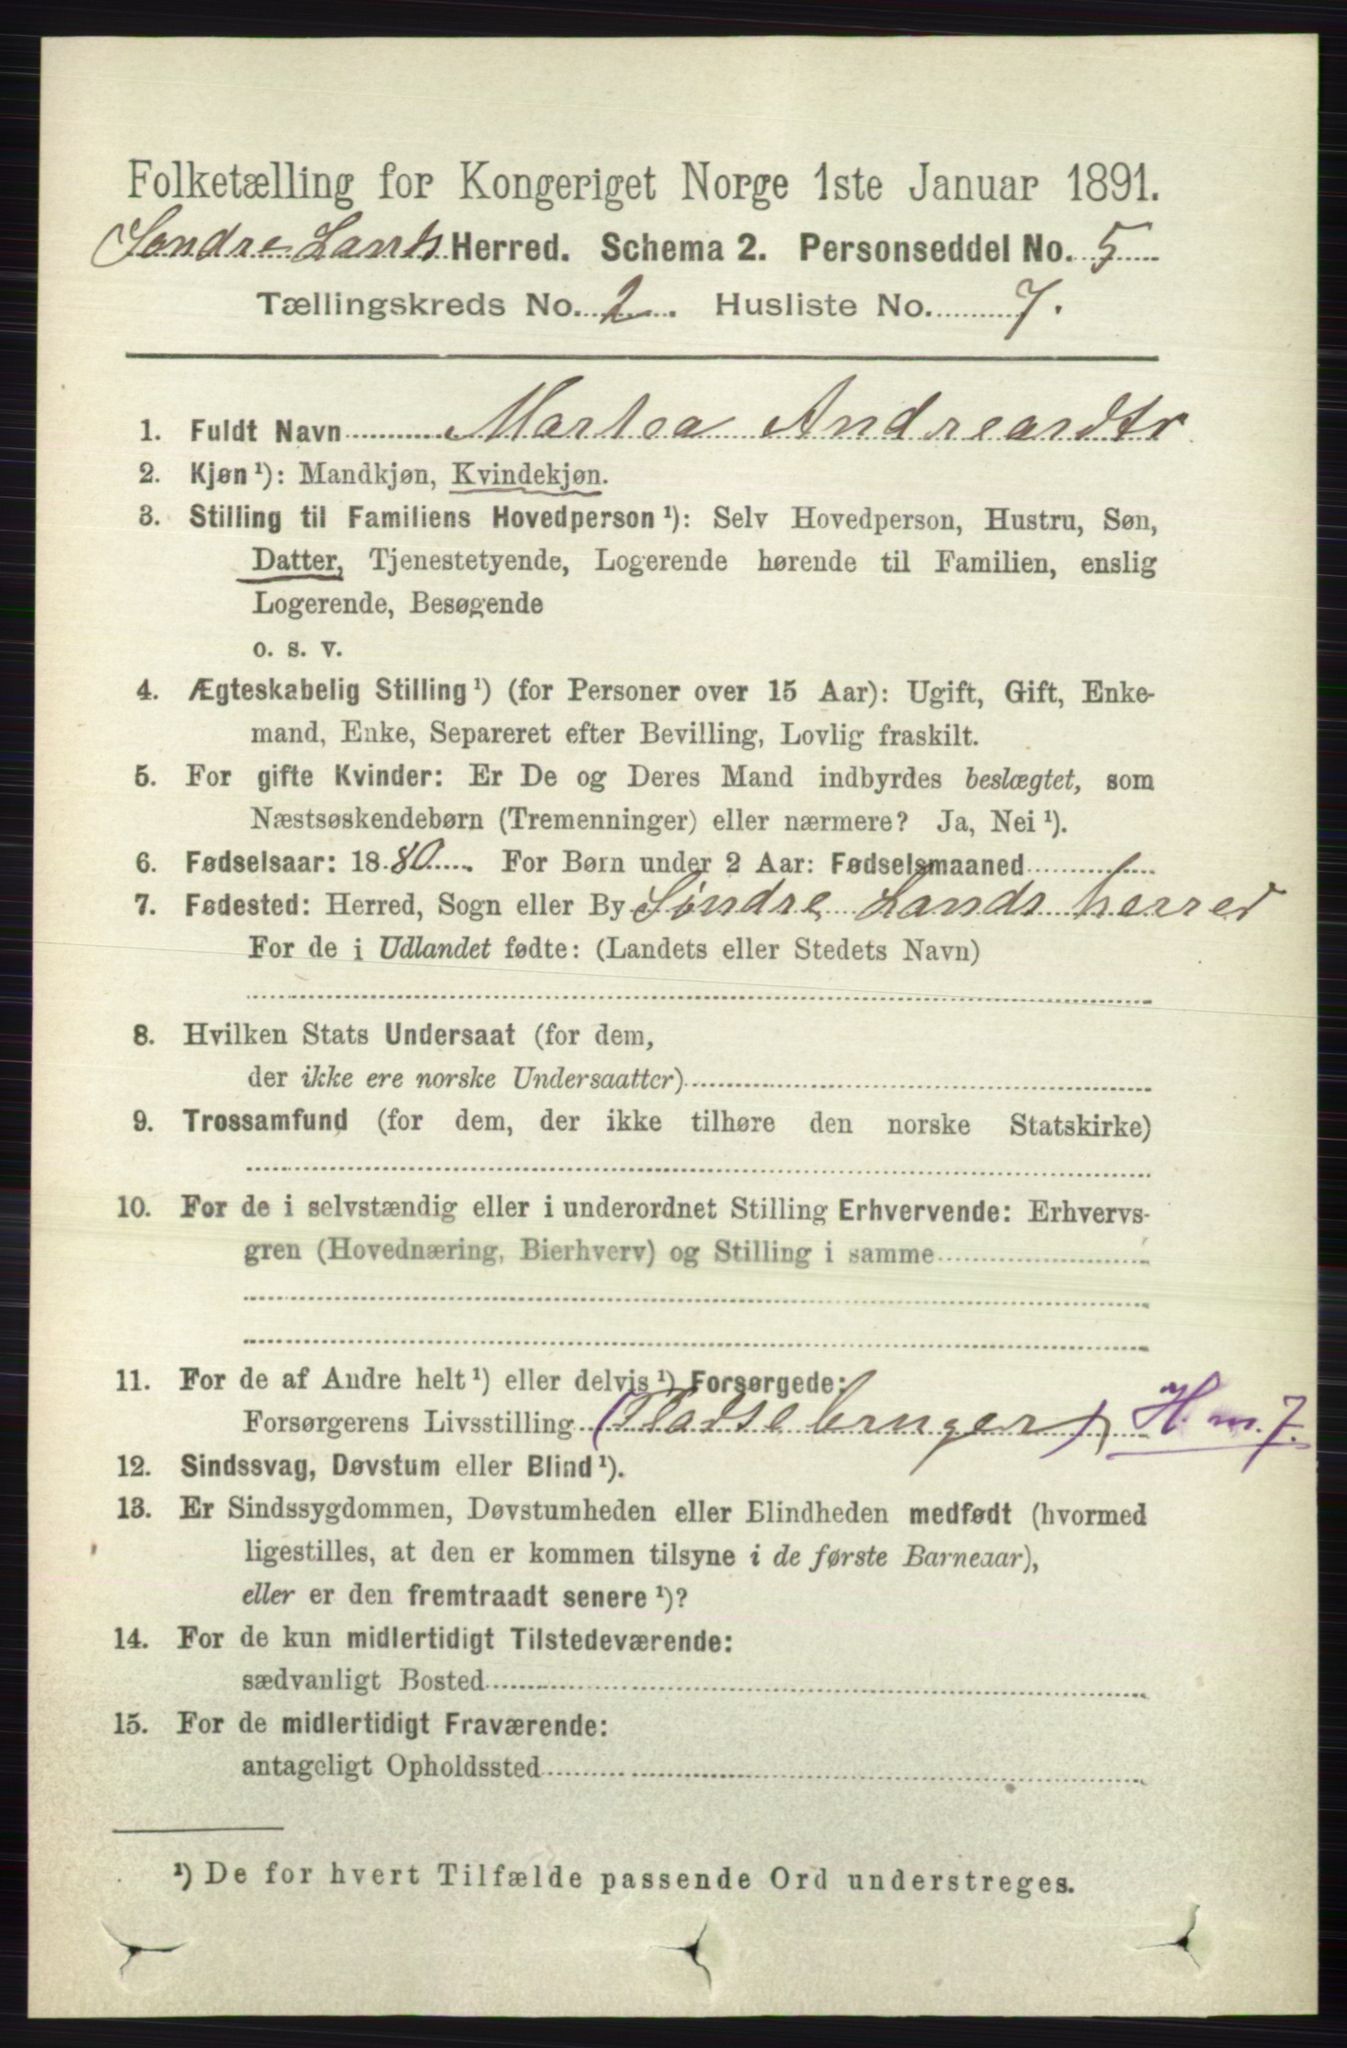 Folketælling for Kongeriget Norge 1ste Januar 1891.
Søndre Lands Herred. Schema 2. Personseddel No. 5
Tællingskreds No. 2. Husliste No. 7.
1. Fuldt Navn Marthea Andreasdtr
2. Kjøn ¹): Mandkjøn, Kvindekjøn.
3. Stilling til Familiens Hovedperson ¹): Selv Hovedperson, Hustru, Søn,
Datter, Tjenestetyende, Logerende hørende til Familien, enslig
Logerende, Besøgende
o. s. v.
4. Ægteskabelig Stilling ¹) (for Personer over 15 Aar): Ugift, Gift, Enke-
mand, Enke, Separeret efter Bevilling, Lovlig fraskilt.
5. For gifte Kvinder: Er De og Deres Mand indbyrdes beslægtet, som
Næstsøskendebørn (Tremenninger) eller nærmere? Ja, Nei ¹).
6. Fødselsaar: 1880. For Børn under 2 Aar: Fødselsmaaned
7. Fødested: Herred, Sogn eller By Søndre Lands herred
For de i Udlandet fødte: (Landets eller Stedets Navn)
8. Hvilken Stats Undersaat (for dem,
der ikke ere norske Undersaatter)
9. Trossamfund (for dem, der ikke tilhøre den norske Statskirke)
10. For de i selvstændig eller i underordnet Stilling Erhvervende: Erhvervs-
gren (Hovednæring, Bierhverv) og Stilling i samme
11. For de af Andre helt ¹) eller delvis ¹) Forsørgede:
Forsørgerens Livsstilling (Pladsebruger) H. m. 7.
12. Sindssvag, Døvstum eller Blind ¹).
13. Er Sindssygdommen, Døvstumheden eller Blindheden medfødt (hvormed
ligestilles, at den er kommen tilsyne i de første Barneaar),
eller er den fremtraadt senere ¹)?
14. For de kun midlertidigt Tilstedeværende:
sædvanligt Bosted
15. For de midlertidigt Fraværende:
antageligt Opholdssted
¹) De for hvert Tilfælde passende Ord understreges.